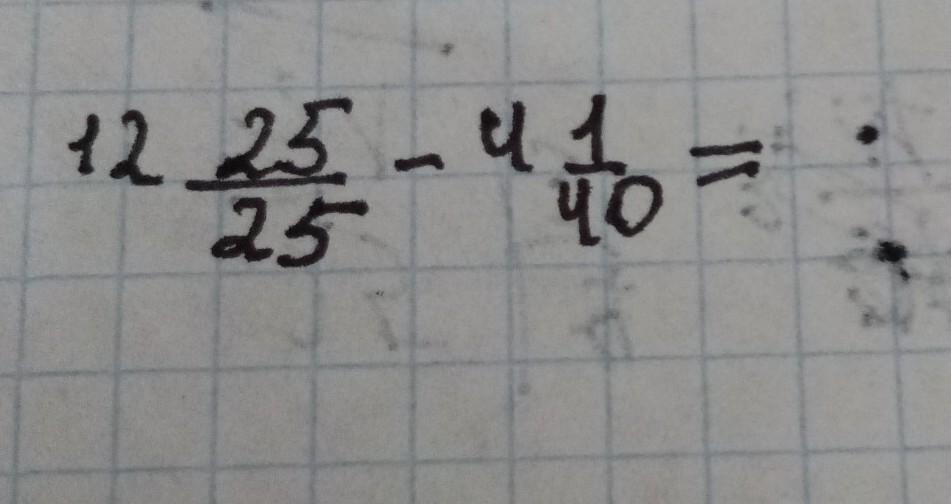 12 25/25 - 4 1/40 =